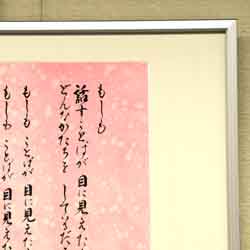 もしも
話すことばが 目に見えた
どんなかたちを して
もしも ことばが 目に見えた
もしも ことばが 目に見え